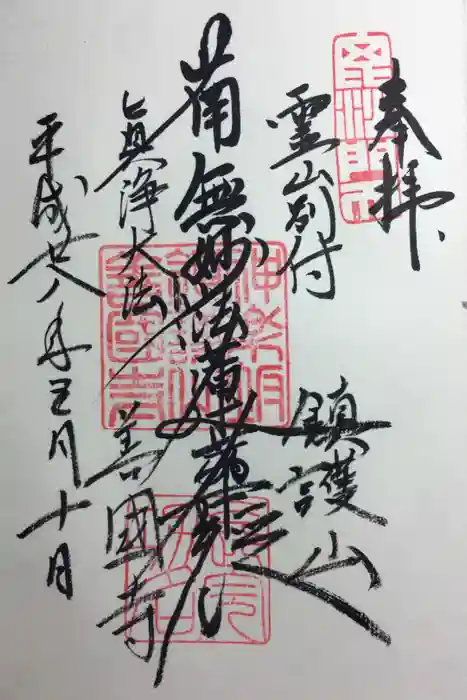 奉拝
霊山別付
鎮護山
南無妙法蓮華経
眞浄大法
善國寺
平成廿八年五月十日